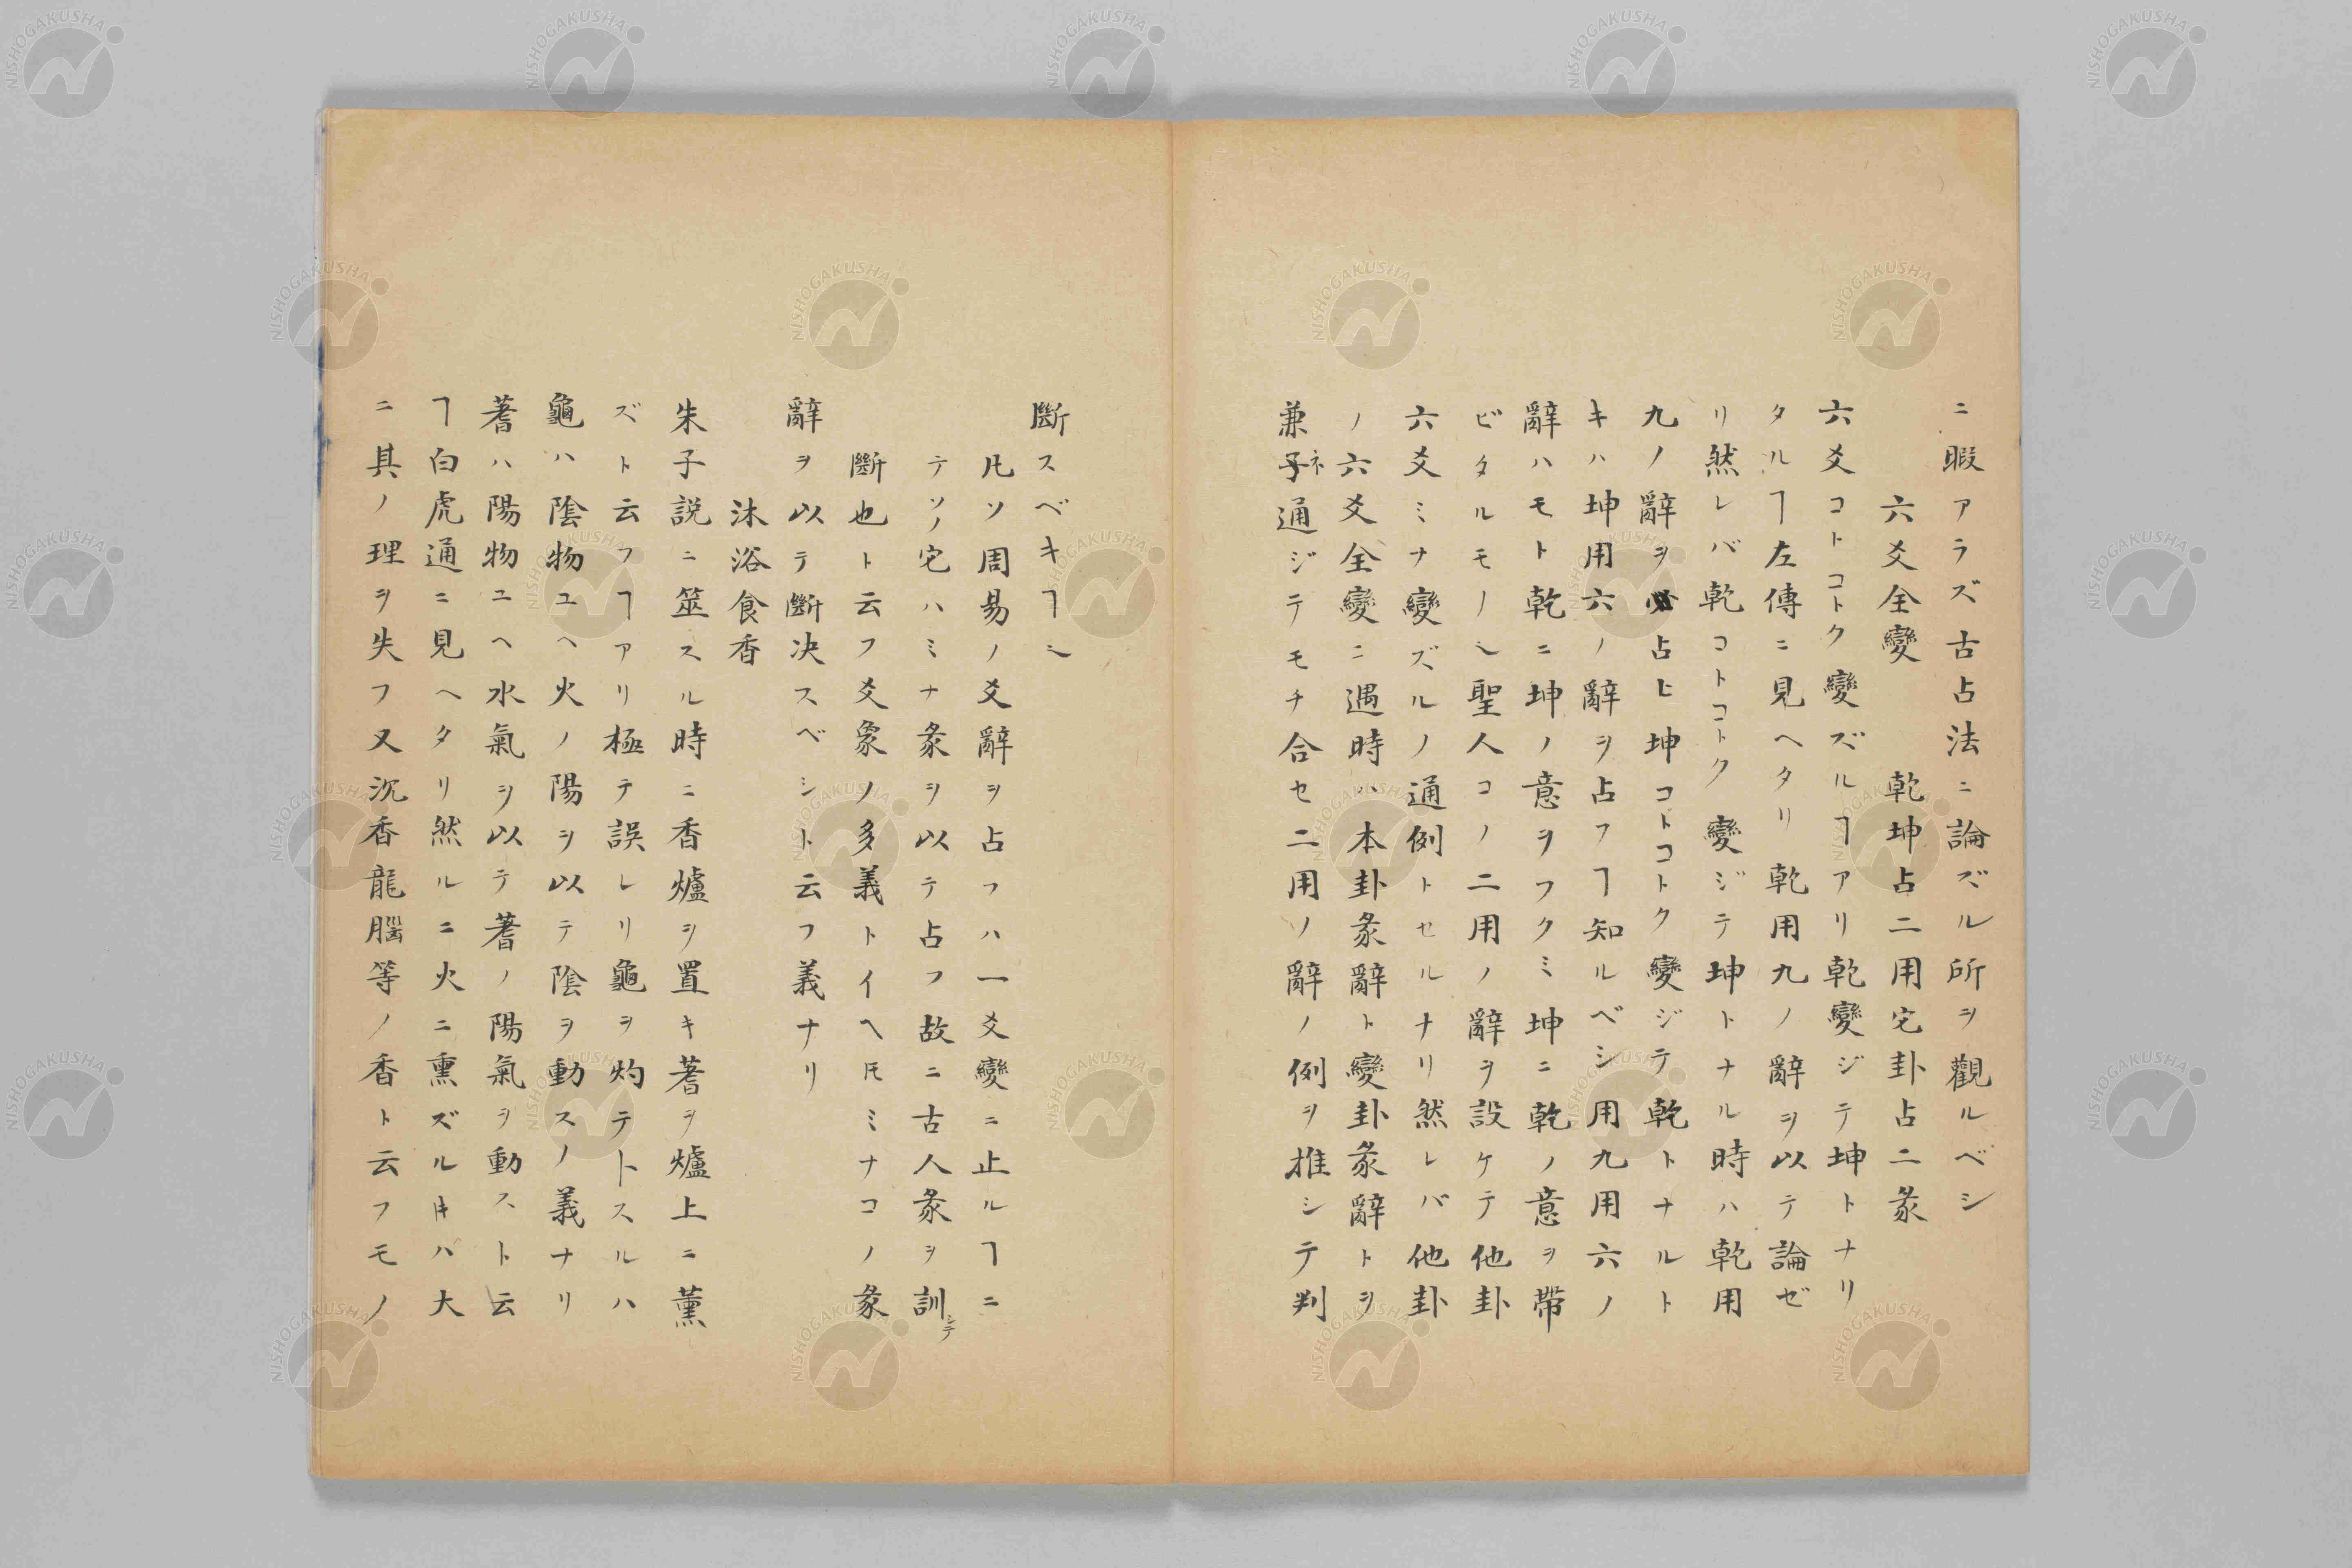 ニ暇アラズ古占法ニ論ズル所ヲ觀ルベシ
六爻全變　乾坤占二用宅卦占二彖
六爻コトコトク變ズルヿアリ乾變ジテ坤トナリ
タルヿ左傳ニ見ヘタリ乾用九ノ辭ヲ以テ論ゼ
リ然レバ乾コトコトク變ジテ坤トナル時ハ乾用
九ノ辭ヲ占ヒ坤コトコトク變ジテ乾トナルト
キハ坤用六ノ辭ヲ占フヿ知ルベシ用九用六ノ
辭ハモト乾ニ坤ノ意ヲフクミ坤ニ乾ノ意ヲ帶
ビタルモノ〆聖人コノ二用ノ辭ヲ設ケテ他卦
六爻ミナ變ズルノ通例トセルナリ然レバ他卦
ノ六爻全變ニ遇時ハ本卦彖辭ト變卦彖辭トヲ
兼子ネ通ジテモチ合セ二用ノ辭ノ例ヲ推シテ判
斷スベキヿ〆
凡ソ周易ノ爻辭ヲ占フハ一爻變ニ止ルヿニ
テソノ宅ハミナ彖ヲ以テ占フ故ニ古人彖ヲ訓シテ
斷也ト云フ爻象ノ多義トイヘ𪜈ミナコノ彖
辭ヲ以テ斷決スベシト云フ義ナリ
沐浴食香
朱子説ニ筮スル時ニ香爐ヲ置キ蓍ヲ爐上ニ薰
ズト云フヿアリ極テ誤レリ龜ヲ灼テトスルハ
龜ハ陰物ユヘ火ノ陽ヲ以テ陰ヲ動スノ義ナリ
蓍ハ陽物ユヘ水氣ヲ以テ蓍ノ陽氣ヲ動スト云
ヿ白虎通ニ見ヘタリ然ルニ火ニ熏ズル𪜈ハ大
ニ其ノ理ヲ失フ又沉香龍腦等ノ香ト云フモノ
NISHOGAKUSHA